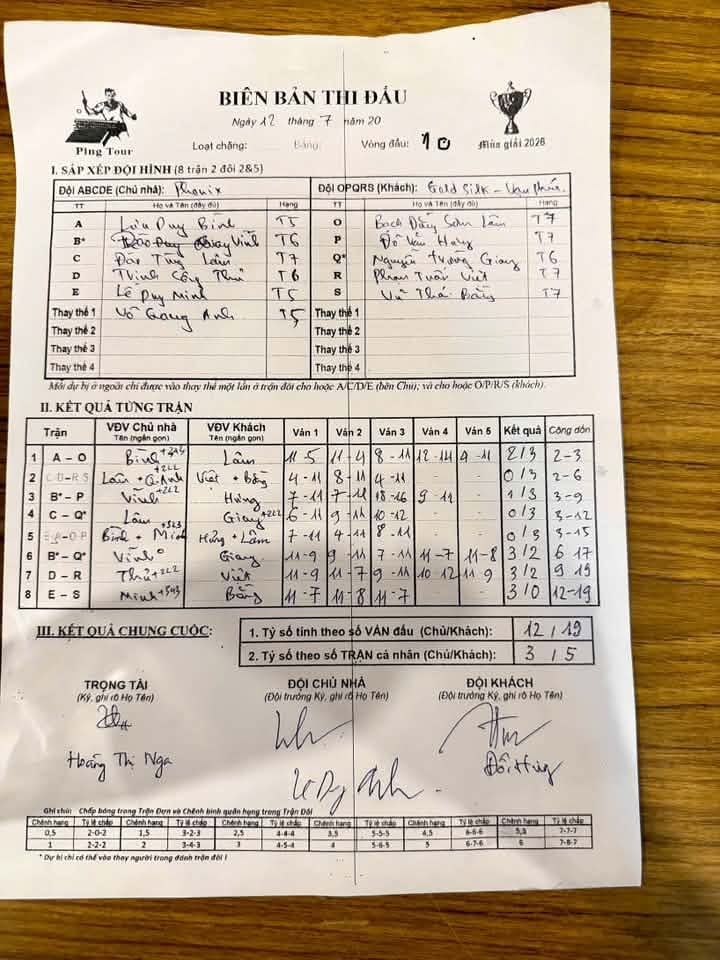 BIÊN BẢN THI ĐẤU
Ngày 12 tháng 7 năm 20
Ping Tour
Loại chặng: Bảng: Vòng đấu: 10 Mùa giải 2026
I. SẮP XẾP ĐỘI HÌNH (8 trận 2 đôi 2&5)
Đội ABCDE (Chủ nhà): Phonix Đội OPQRS (Khách): Gold Silk - Vạn Phúc.
TT Họ và Tên (đầy đủ) Hạng TT Họ và Tên (đầy đủ) Hạng
A Lưu Duy Bình T5 O Bạch Đặng Sơn Lâm T7
B* Vinh T6 P Đỗ Văn Hưng T7
C Đào Tùng Lâm T7 Q* Nguyễn Trường Giang T6
D Trịnh Công Thử T6 R Phan Tuấn Việt T7
E Lê Duy Minh T5 S Vũ Thái Bằng T7
Thay thế 1 Võ Giang Anh T5 Thay thế 1
Thay thế 2 Thay thế 2
Thay thế 3 Thay thế 3
Thay thế 4 Thay thế 4
Mỗi dự bị ở ngoài chỉ được vào thay thế một lần ở trận đôi cho hoặc A/C/D/E (bên Chủ); và cho hoặc O/P/R/S (khách).
II. KẾT QUẢ TỪNG TRẬN
Trận VĐV Chủ nhà VĐV Khách Ván 1 Ván 2 Ván 3 Ván 4 Ván 5 Kết quả Cộng dồn
Tên (ngắn gọn) Tên (ngắn gọn)
1 A – O Bình +343 Lâm 11-5 11-4 8-11 12-14 9-11 2/3 2-3
2 C-D-R-S Lâm + G.Anh +222 Việt + Bằng 4-11 8-11 4-11 - - 0/3 2-6
3 B* – P Vinh +222 Hưng 7-11 7-11 18-16 9-11 - 1/3 3-9
4 C – Q* Lâm Giang +222 6-11 9-11 10-12 - - 0/3 3-12
5 E-A-O-P Bình + Minh +343 Hưng + Lâm 7-11 4-11 8-11 - - 0/3 3-15
6 B* – Q* Vinh 0 Giang 11-9 9-11 7-11 11-7 11-8 3/2 6 17
7 D – R Thử +222 Việt 11-9 11-7 9-11 10 12 11-9 3/2 9 19
8 E – S Minh +343 Bằng 11-7 11-8 11-7 - - 3/0 12-19
III. KẾT QUẢ CHUNG CUỘC:
1. Tỷ số tính theo số VÁN đấu (Chủ/Khách): 12 / 19
2. Tỷ số theo số TRẬN cá nhân (Chủ/Khách): 3 / 5
TRỌNG TÀI ĐỘI CHỦ NHÀ ĐỘI KHÁCH
(Ký, ghi rõ Họ Tên) (Đội trưởng Ký, ghi rõ Họ Tên) (Đội trưởng Ký, ghi rõ Họ Tên)
Hoàng Thị Nga
Ghi chú: Chấp bóng trong Trận Đơn và Chênh bình quân hạng trong Trận Đôi
Chênh hạng Tỷ lệ chấp Chênh hạng Tỷ lệ chấp Chênh hạng Tỷ lệ chấp Chênh hạng Tỷ lệ chấp Chênh hạng Tỷ lệ chấp Chênh hạng Tỷ lệ chấp
0,5 2-0-2 1,5 3-2-3 2,5 4-4-4 3,5 5-5-5 4,5 6-6-6 5,5 7-7-7
1 2-2-2 2 3-4-3 3 4-5-4 4 5-6-5 5 6-7-6 6 7-8-7
* Dự bị chỉ có thể vào thay người trong đánh trận đôi !